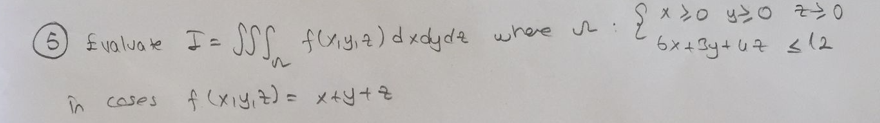 ⑤ Evaluate I = ∭_Ω f(x,y,z) dxdydz where Ω : { x ≥ 0 y ≥ 0 z ≥ 0
6x+3y+4z ≤ 12
in cases f(x,y,z) = x+y+z